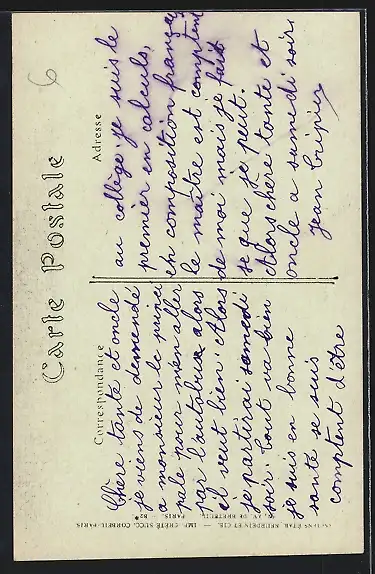 6
Carte Postale
Correspondance
Adresse
Chère tante et oncle
je viens de demendé
a monsieur le princi
pale pour m'en aller
par l'autobus alors
il veut bien. Alors
je parterai samedi
soir. tout va bien
je suis en bonne
santé se suis
comptent d'être
au collège. je suis le
premier en calculs,
en composition français
le maître est comptent
de moi mais je fait
se que je peut.
Alors chère tante et
oncle a samedi soir.
Jean
ANCIENS ÉTAB. NEURDEIN ET CIE. — IMP. CRÉTÉ SUCC. CORBEIL-PARIS
AV. DE BRETEUIL, PARIS. — 82*